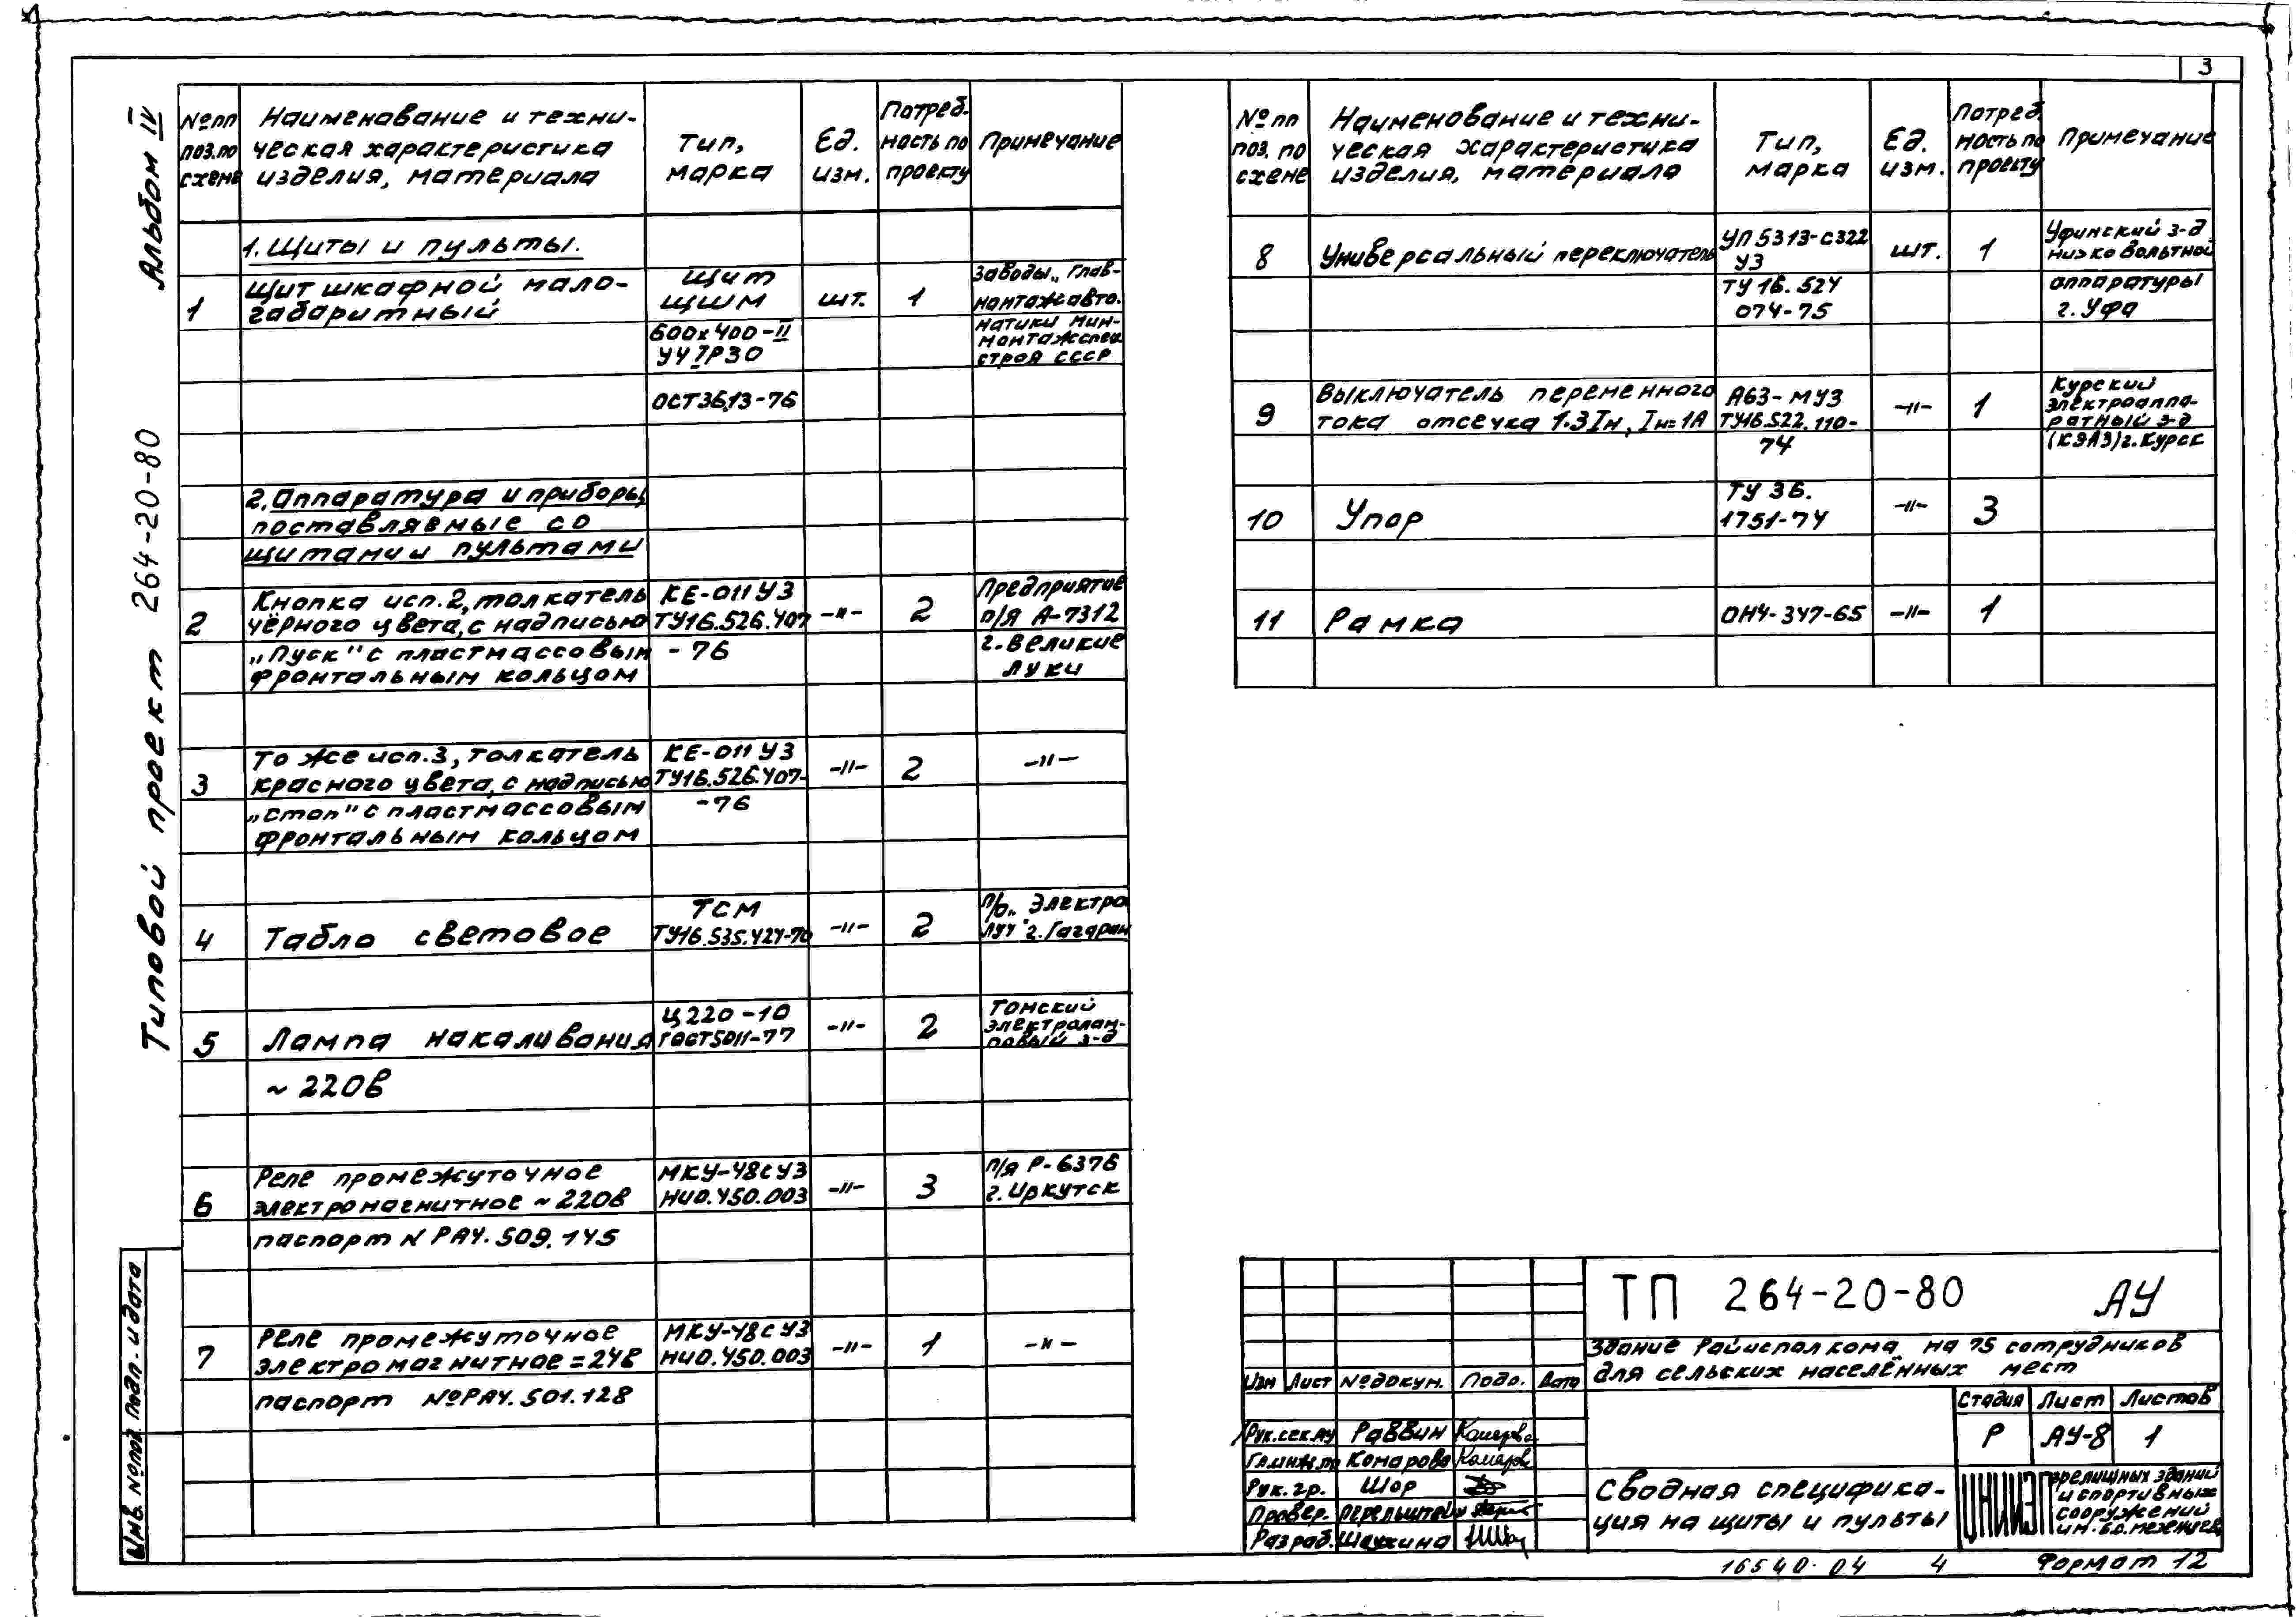 3
Альбом IV
Типовой проект 264-20-80
Инв. № подл. Подп. и дата
№ пп поз. по схеме
Наименование и техни-
ческая характеристика
изделия, материала
Тип, марка
Ед. изм.
Потреб-
ность по
проекту
Примечание
1. Щиты и пульты.
1
Щит шкафной мало-
габаритный
Щит
ЩШМ
600х400-II
УЧ IР30
ОСТ36.13-76
шт.
1
Заводы „Глав-
монтажавто-
матики Мин-
монтажспец
строя СССР
2. Аппаратура и приборы,
поставляемые со
щитами и пультами
2
Кнопка исп. 2, толкатель
чёрного цвета, с надписью
„Пуск" с пластмассовым
фронтальным кольцом
КЕ-011 У3
ТУ16.526.407
-76
-"-
2
Предприятие
п/я А-7312
г. Великие
Луки
3
То же исп. 3, толкатель
красного цвета, с надписью
„Стоп" с пластмассовым
фронтальным кольцом
КЕ-011 У3
ТУ16.526.407-
-76
-"-
2
-"-
4
Табло световое
ТСМ
ТУ16.535.424-70
-"-
2
п/о „Электро
луч" г. Гагарин
5
Лампа накаливания
~ 220в
Ц 220-10
ГОСТ5011-77
-"-
2
Томский
электролам-
повый з-д
6
Реле промежуточное
электромагнитное ~ 220в
паспорт N РАЧ. 509. 145
МКУ-48с У3
НИ0.450.003
-"-
3
п/я Р-6376
г. Иркутск
7
Реле промежуточное
электромагнитное = 24в
паспорт № РАЧ. 501.128
МКУ-48с У3
НИ0.450.003
-"-
1
-"-
№ пп
поз. по
схеме
Наименование и техни-
ческая характеристика
изделия, материала
Тип,
марка
Ед.
изм.
Потреб.
ность по
проекту
Примечание
8
Универсальный переключатель
УП 5313-С322
У3
ТУ 16. 524
074-75
шт.
1
Уфимский з-д
низковольтной
аппаратуры
г. Уфа
9
Выключатель переменного
тока отсечка 1.3 Iн, Iн=1А
А63-МУ3
ТУ16.522.110-
74
-"-
1
Курский
электроаппа-
ратный з-д
(КЭАЗ) г. Курск
10
Упор
ТУ 36.
1751-74
-"-
3
11
Рамка
ОН4-347-65
-"-
1
ТП 264-20-80 АУ
Здание райисполкома на 75 сотрудников
для сельских населённых мест
Изм Лист № докум. Подп. Дата
Стадия Лист Листов
Р АУ-8 1
Рук. сек. АУ Раввин
Гл. инж. пр Комарова
Рук. гр. Шор
Провер. Перельштейн
Разраб. Шаухина
Сводная специфика-
ция на щиты и пульты
ЦНИИЭП
зрелищных зданий
и спортивных
сооружений
им. Б.С. Мезенцева
16540-04 4 Формат 12